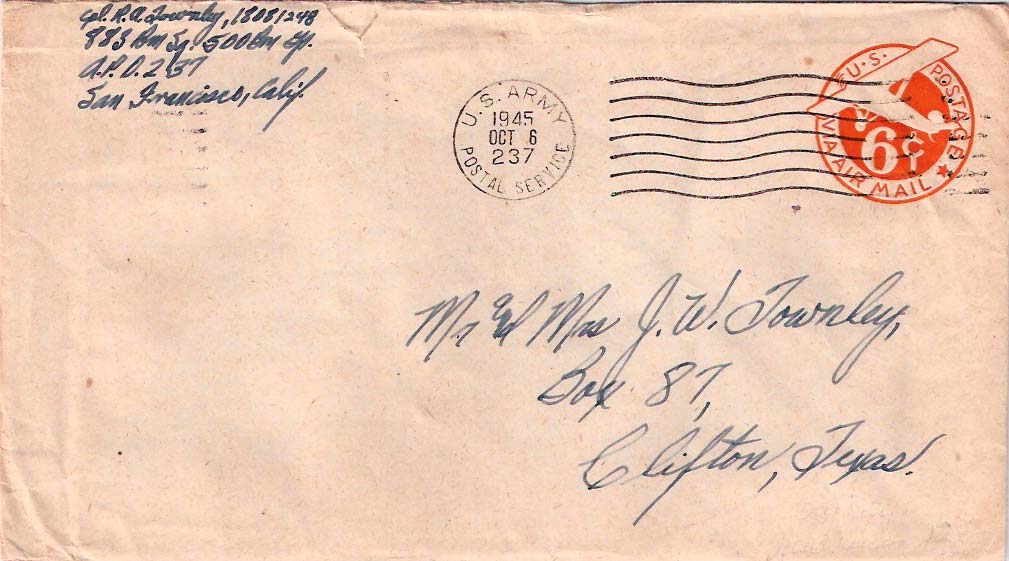 Cpl. R.A. Townley, 18081248
883 Bm Sq. 500 Bm Gp.
A.P.O. 237
San Francisco, Calif.
U.S. ARMY
1945
OCT 6
237
POSTAL SERVICE
U.S. POSTAGE
6¢
VIA AIR MAIL
Mr and Mrs J. W. Townley,
Box 87,
Clifton, Texas.